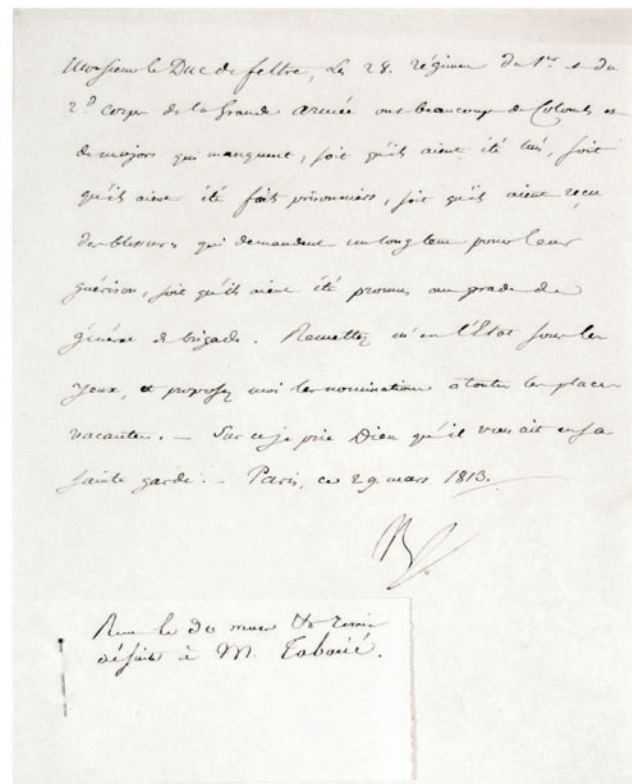 Monsieur le Duc de feltre, Les 28. régimens du 1er et du
2d corps de la Grande Armée ont beaucoup de Colonels et
de majors qui manquent, soit qu'ils aient été tués, soit
qu'ils aient été faits prisonniers, soit qu'ils aient reçu
des blessures qui demandent un long tems pour leur
guérison, soit qu'ils aient été promus au grade de
général de brigade. Remettez m'en l'Etat sous les
yeux, et proposez moi les nominations à toutes les places
vacantes. — Sur ce je prie Dieu qu'il vous ait en sa
sainte garde. — Paris, ce 29 mars 1813.
Reçu le 30 mars
de suite à M. Tabarié.